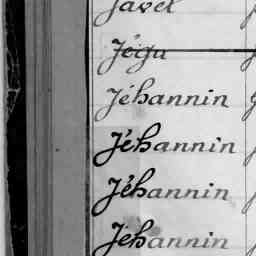 Javel
Jégu
Jéhannin
Jéhannin
Jéhannin
Jéhannin